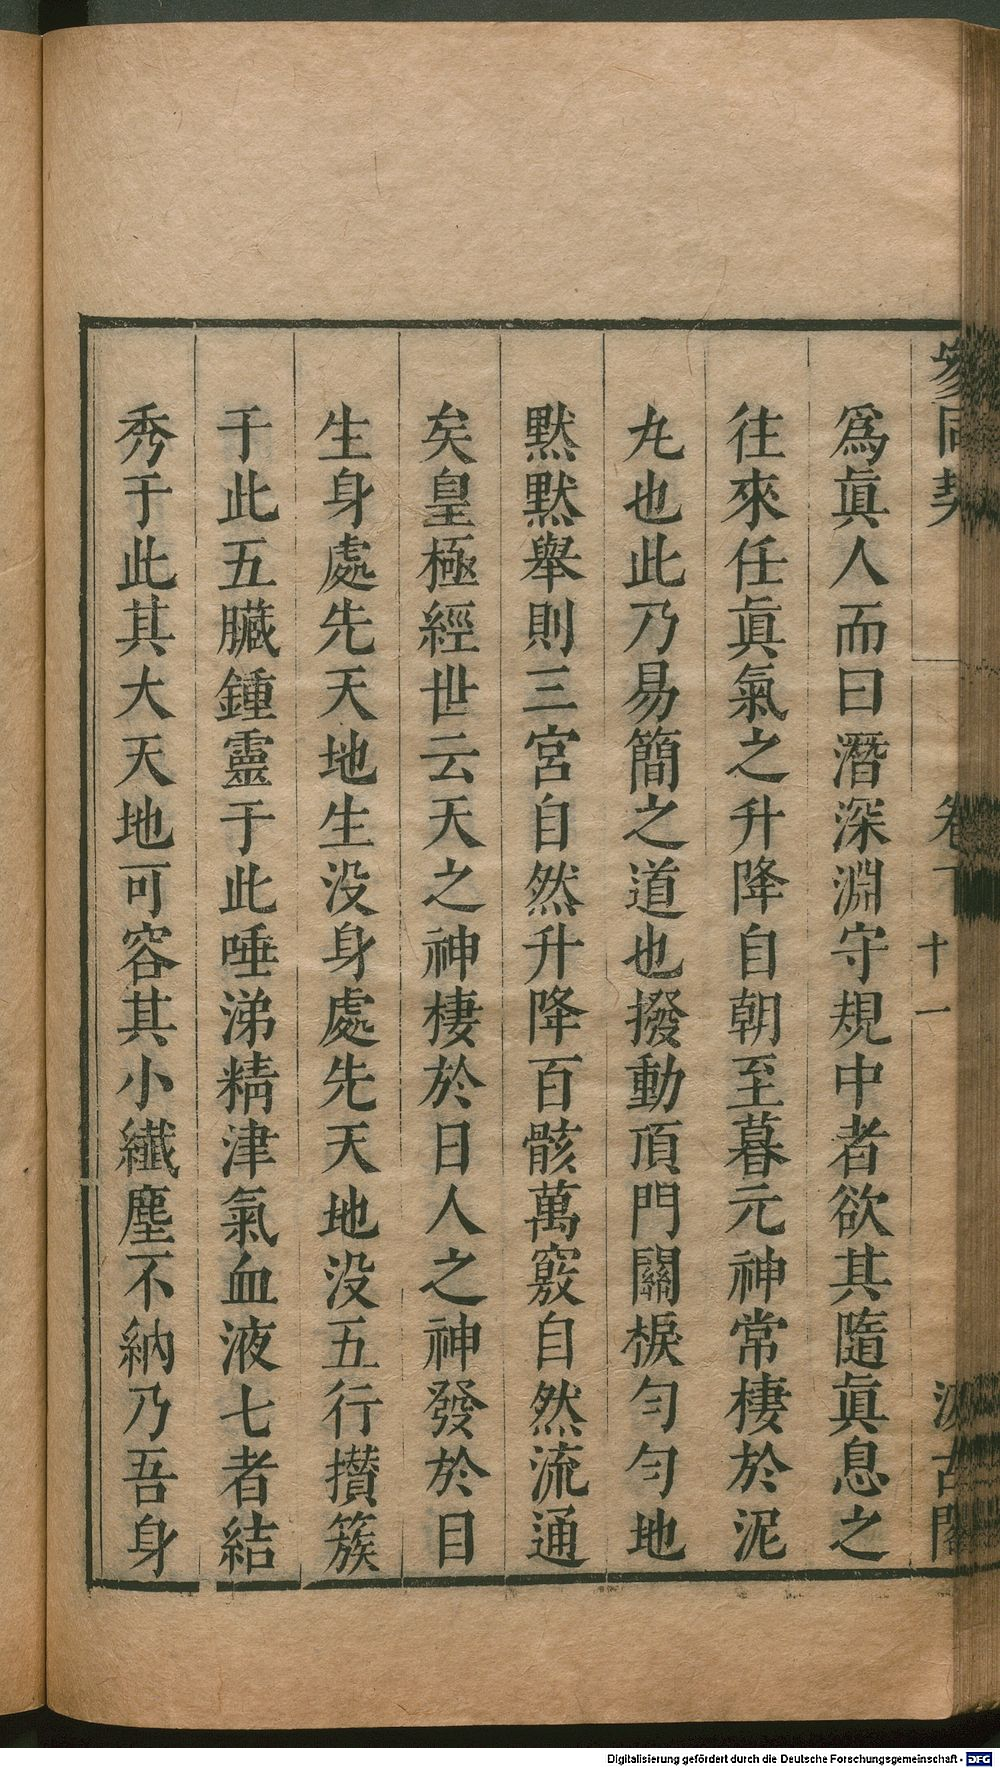 參同契 卷下 十一 汲古閣
爲眞人而曰潛深淵守規中者欲其隨眞息之
往來任眞氣之升降自朝至暮元神常棲於泥
丸也此乃易簡之道也撥動頂門關棙勻勻地
默默舉則三宮自然升降百骸萬竅自然流通
矣皇極經世云天之神棲於日人之神發於目
生身處先天地生没身處先天地没五行攅簇
于此五臟鍾靈于此唾涕精津氣血液七者結
秀于此其大天地可容其小纖塵不納乃吾身
Digitalisierung gefördert durch die Deutsche Forschungsgemeinschaft - DFG